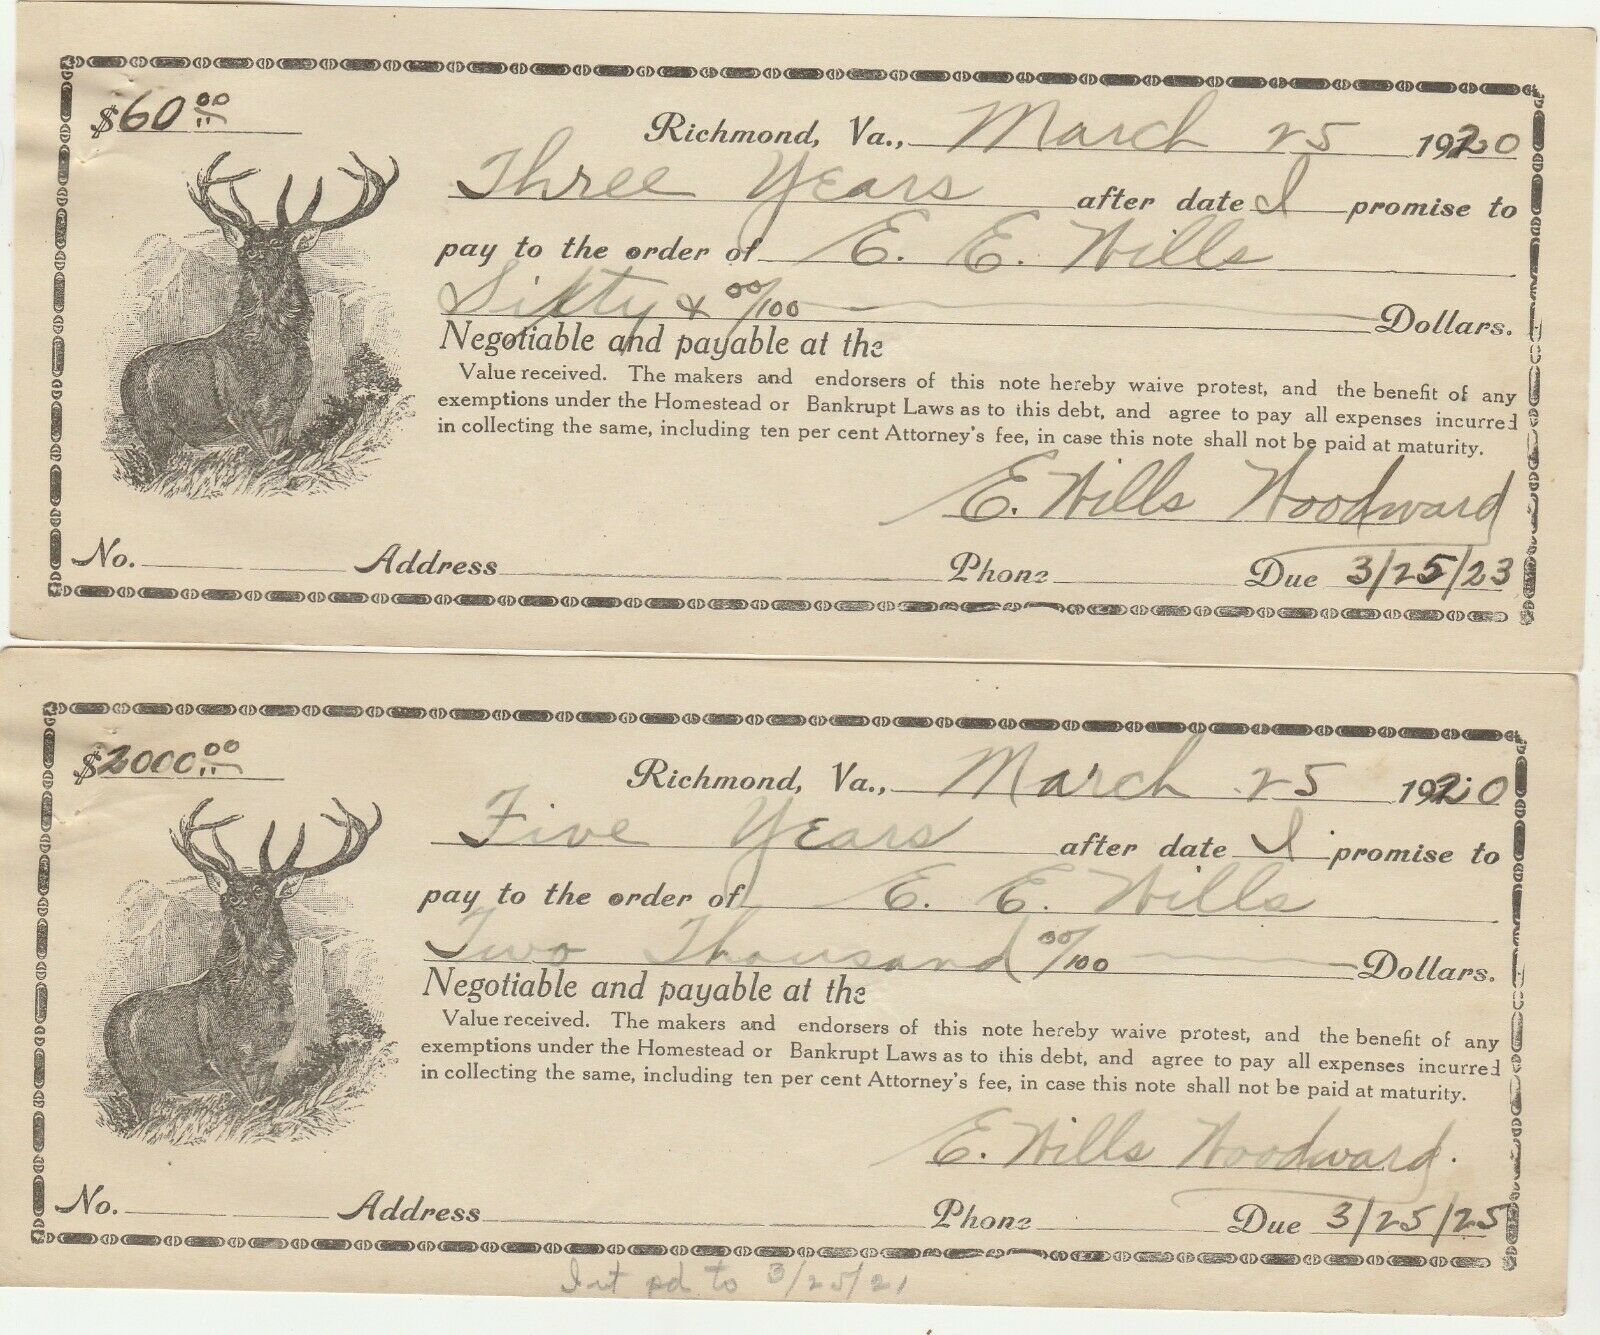 $60.00
Richmond, Va., March 25 1920
Three Years after date I promise to
pay to the order of E. E. Wills
Sixty & 00/100 Dollars.
Negotiable and payable at the
Value received. The makers and endorsers of this note hereby waive protest, and the benefit of any
exemptions under the Homestead or Bankrupt Laws as to this debt, and agree to pay all expenses incurred
in collecting the same, including ten per cent Attorney's fee, in case this note shall not be paid at maturity.
E. Wills Woodward
No. Address Phone Due 3/25/23
$2000.00
Richmond, Va., March 25 1920
Five Years after date I promise to
pay to the order of E. E. Wills
Two Thousand 00/100 Dollars.
Negotiable and payable at the
Value received. The makers and endorsers of this note hereby waive protest, and the benefit of any
exemptions under the Homestead or Bankrupt Laws as to this debt, and agree to pay all expenses incurred
in collecting the same, including ten per cent Attorney's fee, in case this note shall not be paid at maturity.
E. Wills Woodward.
No. Address Phone Due 3/25/25
Int pd to 3/25/21